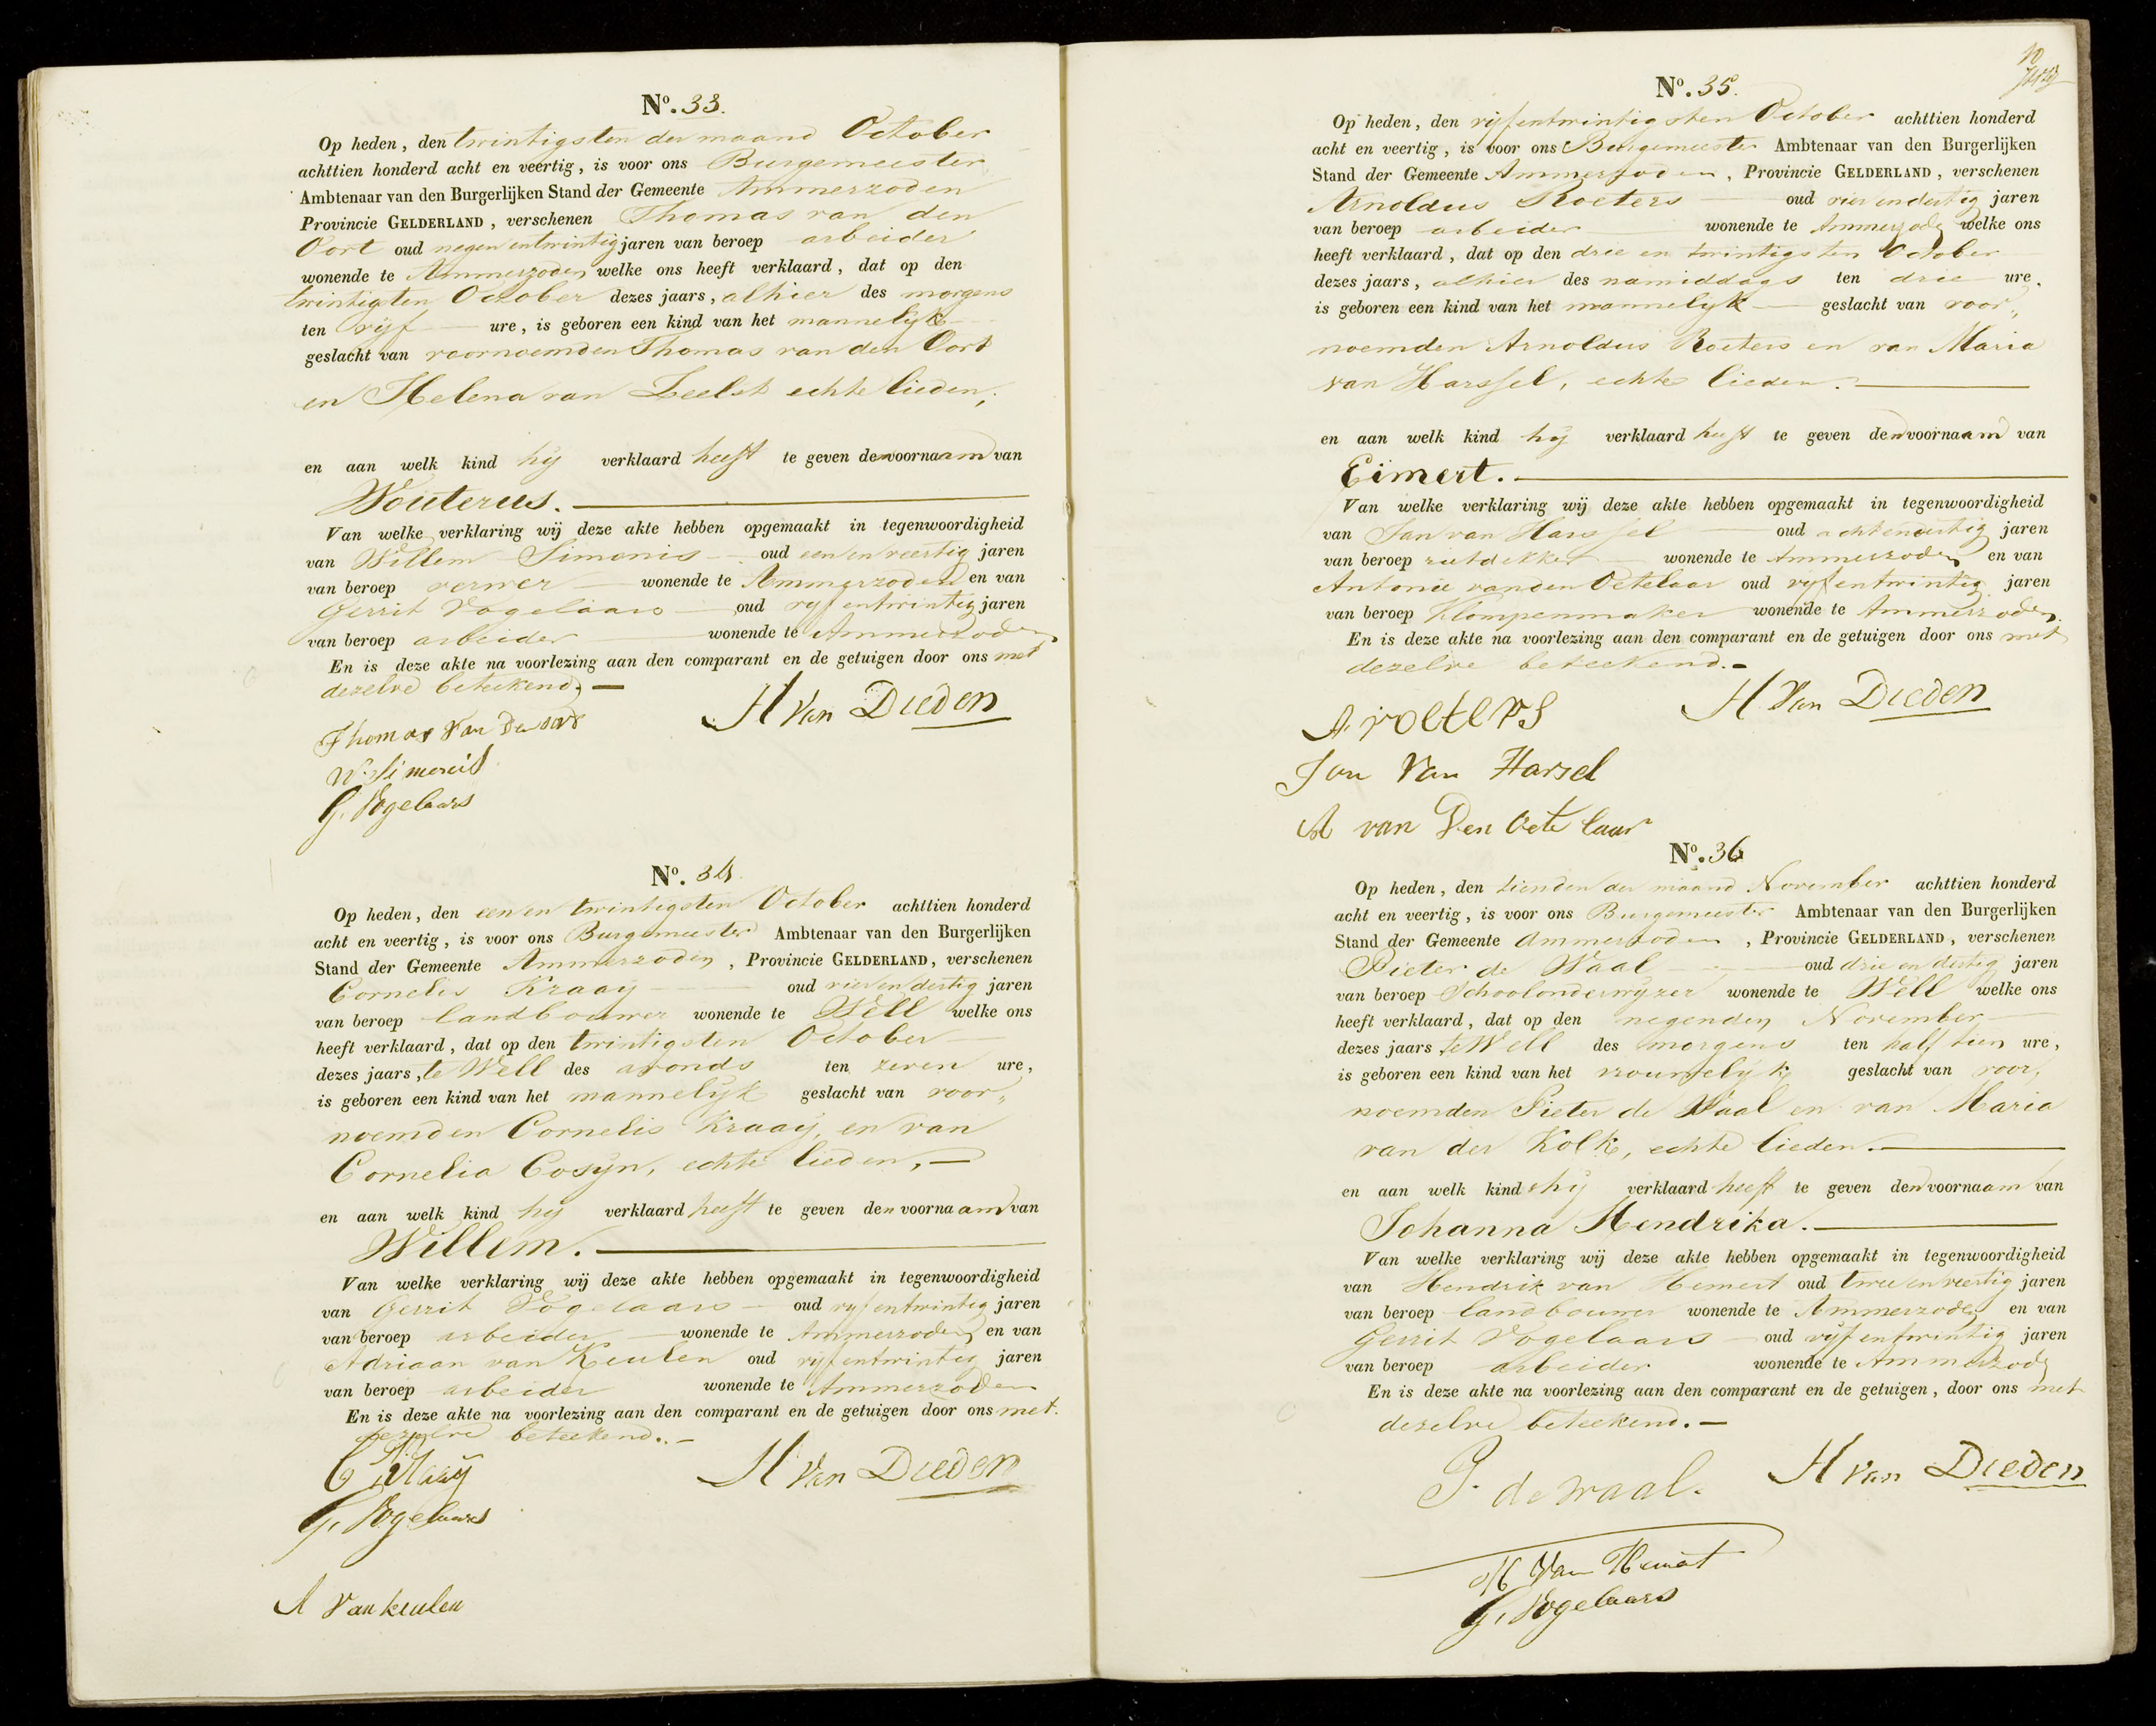 Nº. 33.
Op heden, den twintigsten der maand October
achttien honderd acht en veertig, is voor ons Burgemeester
Ambtenaar van den Burgerlijken Stand der Gemeente Ammerzoden
Provincie GELDERLAND, verschenen Thomas van den
Oort oud negen en twintig jaren van beroep arbeider
wonende te Ammerzoden welke ons heeft verklaard, dat op den
twintigsten October dezes jaars, alhier des morgens
ten vijf ure, is geboren een kind van het mannelijk
geslacht van voornoemden Thomas van den Oort
en Helena van Zeelst echte lieden,
en aan welk kind hij verklaard heeft te geven den voornaam van
Wouterus.
Van welke verklaring wij deze akte hebben opgemaakt in tegenwoordigheid
van Willem Simonis oud een en veertig jaren
van beroep verwer wonende te Ammerzoden en van
Gerrit Vogelaars oud vijf en twintig jaren
van beroep arbeider wonende te Ammerzoden
En is deze akte na voorlezing aan den comparant en de getuigen door ons met
dezelve beteekend.
H Van Dieden
Thomas Van Den oord
W. Simonis
G. Vogelaars
Nº. 34.
Op heden, den een en twintigsten October achttien honderd
acht en veertig, is voor ons Burgemeester Ambtenaar van den Burgerlijken
Stand der Gemeente Ammerzoden, Provincie GELDERLAND, verschenen
Cornelis Kraaij oud vier en dertig jaren
van beroep landbouwer wonende te Well welke ons
heeft verklaard, dat op den twintigsten October
dezes jaars, te Well des avonds ten zeven ure,
is geboren een kind van het mannelijk geslacht van voor„
noemden Cornelis Kraaij, en van
Cornelia Cosijn, echte lieden,
en aan welk kind hij verklaard heeft te geven den voornaam van
Willem.
Van welke verklaring wij deze akte hebben opgemaakt in tegenwoordigheid
van Gerrit Vogelaars oud vijf en twintig jaren
van beroep arbeider wonende te Ammerzoden en van
Adriaan van Keulen oud vijf en twintig jaren
van beroep arbeider wonende te Ammerzoden
En is deze akte na voorlezing aan den comparant en de getuigen door ons met
dezelve beteekend.
H Van Dieden
G. Vogelaars
A Van keulen
10
Nº. 35.
Op heden, den vijf en twintigsten October achttien honderd
acht en veertig, is voor ons Burgemeester Ambtenaar van den Burgerlijken
Stand der Gemeente Ammerzoden, Provincie GELDERLAND, verschenen
Arnoldus Roeters oud vier en dertig jaren
van beroep arbeider wonende te Ammerzoden welke ons
heeft verklaard, dat op den drie en twintigsten October
dezes jaars, alhier des namiddags ten drie ure.
is geboren een kind van het mannelijk geslacht van voor„
noemden Arnoldus Roeters en van Maria
van Harssel, echte lieden.
en aan welk kind hij verklaard heeft te geven den voornaam van
Eimert.
Van welke verklaring wij deze akte hebben opgemaakt in tegenwoordigheid
van Jan van Harssel oud acht en dertig jaren
van beroep rietdekker wonende te Ammerzoden en van
Antonie van den Oetelaar oud vijf en twintig jaren
van beroep Klompenmaker wonende te Ammerzoden
En is deze akte na voorlezing aan den comparant en de getuigen door ons met
dezelve beteekend.
H. Van Dieden
A. roeters
Jan Van Harsel
A van Den Oetelaar
Nº. 36
Op heden, den tienden der maand November achttien honderd
acht en veertig, is voor ons Burgemeester Ambtenaar van den Burgerlijken
Stand der Gemeente Ammerzoden, Provincie GELDERLAND, verschenen
Pieter de Waal oud drie en dertig jaren
van beroep Schoolonderwijzer wonende te Well welke ons
heeft verklaard, dat op den negenden November
dezes jaars te Well des morgens ten half tien ure,
is geboren een kind van het vrouwelijk geslacht van voor„
noemden Pieter de Waal en van Maria
van der Kolk, echte lieden.
en aan welk kind hij verklaard heeft te geven den voornaam van
Johanna Hendrika.
Van welke verklaring wij deze akte hebben opgemaakt in tegenwoordigheid
van Hendrik van Hemert oud twee en veertig jaren
van beroep landbouwer wonende te Ammerzoden en van
Gerrit Vogelaars oud vijf en twintig jaren
van beroep arbeider wonende te Ammerzoden
En is deze akte na voorlezing aan den comparant en de getuigen, door ons met
dezelve beteekend.
H Van Dieden
P. de Waal.
H Van Hemert
G. Vogelaars